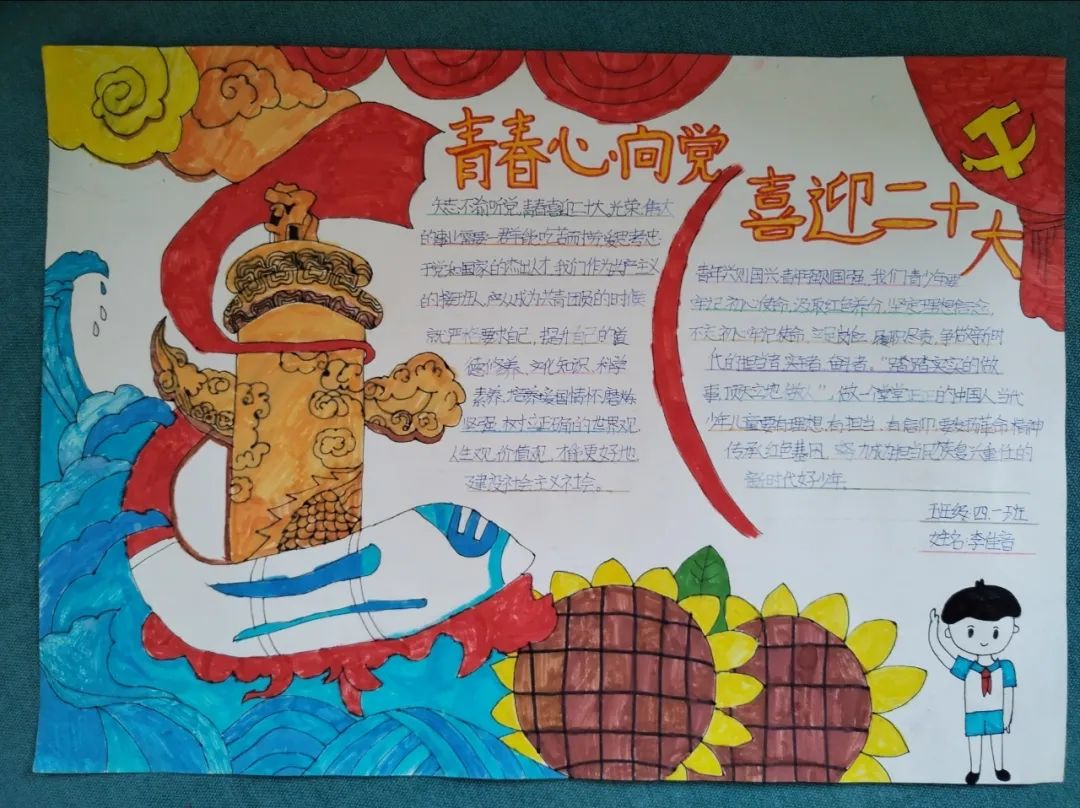 青春心向党
喜迎二十大
矢志不渝听党,青春喜迎二十大,光荣,伟大
的事业需要一群能吃苦而十分爱思考忠
于党和国家的杰出人才,我们作为共产主义
的接班人,应从成为共青团员的时候
就严格要求自己,提升自己的道
德修养、文化知识、科学
素养,培养爱国情怀,磨炼
坚强,树立正确的世界观
人生观,价值观,才能更好地
建设社会主义社会。
青年兴则国兴,青年强则国强,我们青少年要
牢记初心使命,汲取红色养分,坚定理想信念,
不忘初心牢记使命,立足岗位,履职尽责,争做新时
代的担当者,实干者,奋斗者。“踏踏实实的做
事,顶天立地做人”,做一个堂堂正正的中国人当代
少年儿童要有理想,有担当,有信仰,要发扬革命精神
传承红色基因,努力成为担当民族复兴重任的
新时代好少年。
班级:四.一班
姓名:李佳音